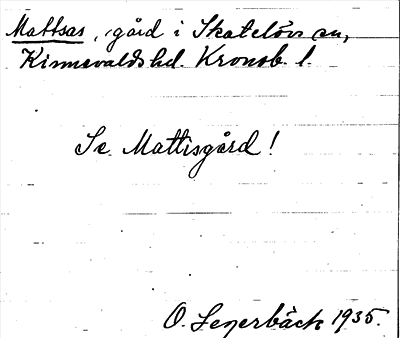 Mattsas, gård i Skatelövs sn,
Kinnevalds hd. Kronob. l.
Se Mattisgård!
O. Lenerbäck 1935.